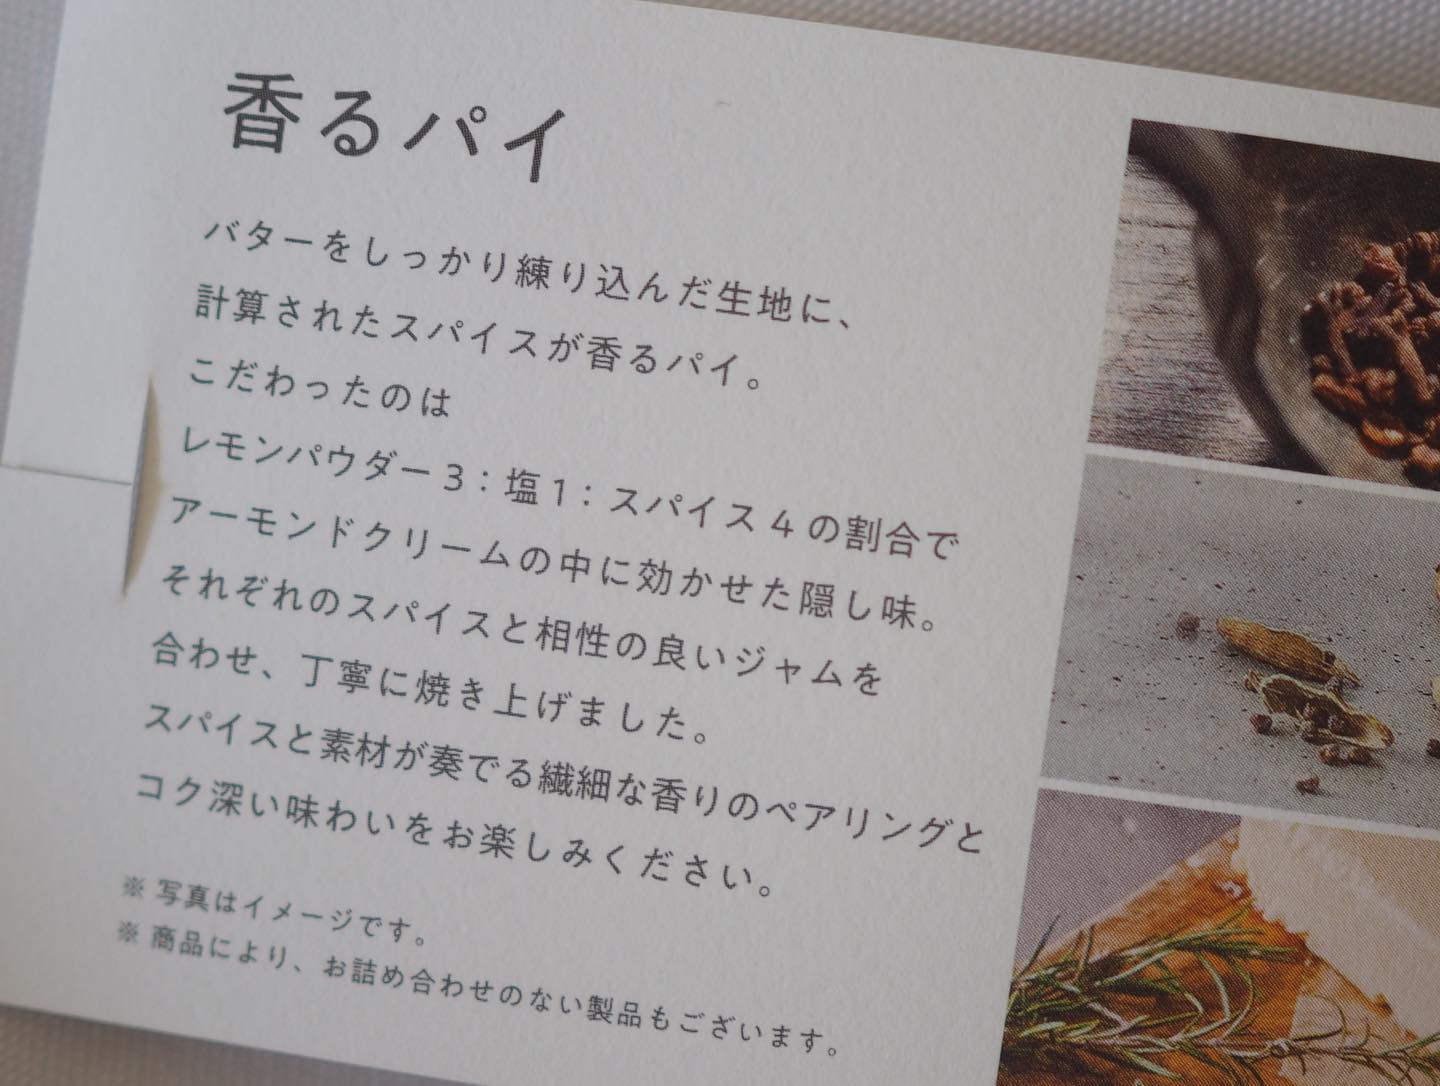 香るパイ
バターをしっかり練り込んだ生地に、
計算されたスパイスが香るパイ。
こだわったのは
レモンパウダー3：塩1：スパイス4の割合で
アーモンドクリームの中に効かせた隠し味。
それぞれのスパイスと相性の良いジャムを
合わせ、丁寧に焼き上げました。
スパイスと素材が奏でる繊細な香りのペアリングと
コク深い味わいをお楽しみください。
※ 写真はイメージです。
※ 商品により、お詰め合わせのない製品もございます。